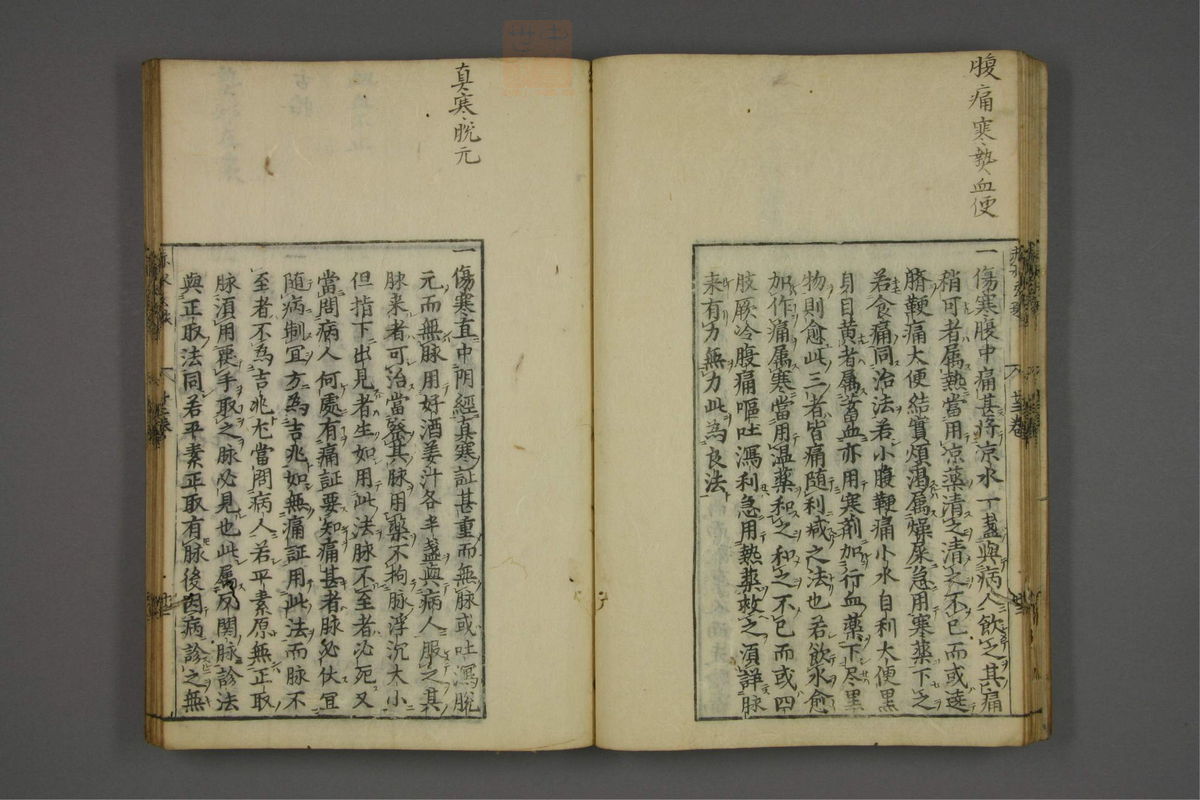 腹痛寒熱血便
一傷寒腹中痛甚将凉水一盞與病人飲之其痛
稍可者属熱當用凉薬清之清之不已而或遶
臍鞕痛大便結實煩渇属燥屎急用寒薬下之
若食痛同治法若小腹鞕痛小水自利大便黒
身目黄者属蓄血亦用寒剤加行血薬下尽黒
物則愈此三者皆痛随利减之法也若飲水愈
加作痛属寒當用温薬和之和之不已而或四
肢厥冷腹痛嘔吐瀉利急用熱薬救之湏詳脉
来有力無力此為良法
真寒脱元
一傷寒直中阴經真寒証甚重而無脉或吐瀉脱
元而無脉用好酒姜汁各半盞與病人服之其
脉来者可治當察其脉用薬不拘脉浮沉大小
但指下出見者生如用此法脉不至者必死又
當問病人何處有痛証要知痛甚者脉必伏冝
随病制冝方為吉兆如無痛証用此法而脉不
至者不為吉兆尤當問病人若平素原無正取
脉湏用覆手取之脉必見也此属反関脉診法
與正取法同若平素正取有脉後因病診之無